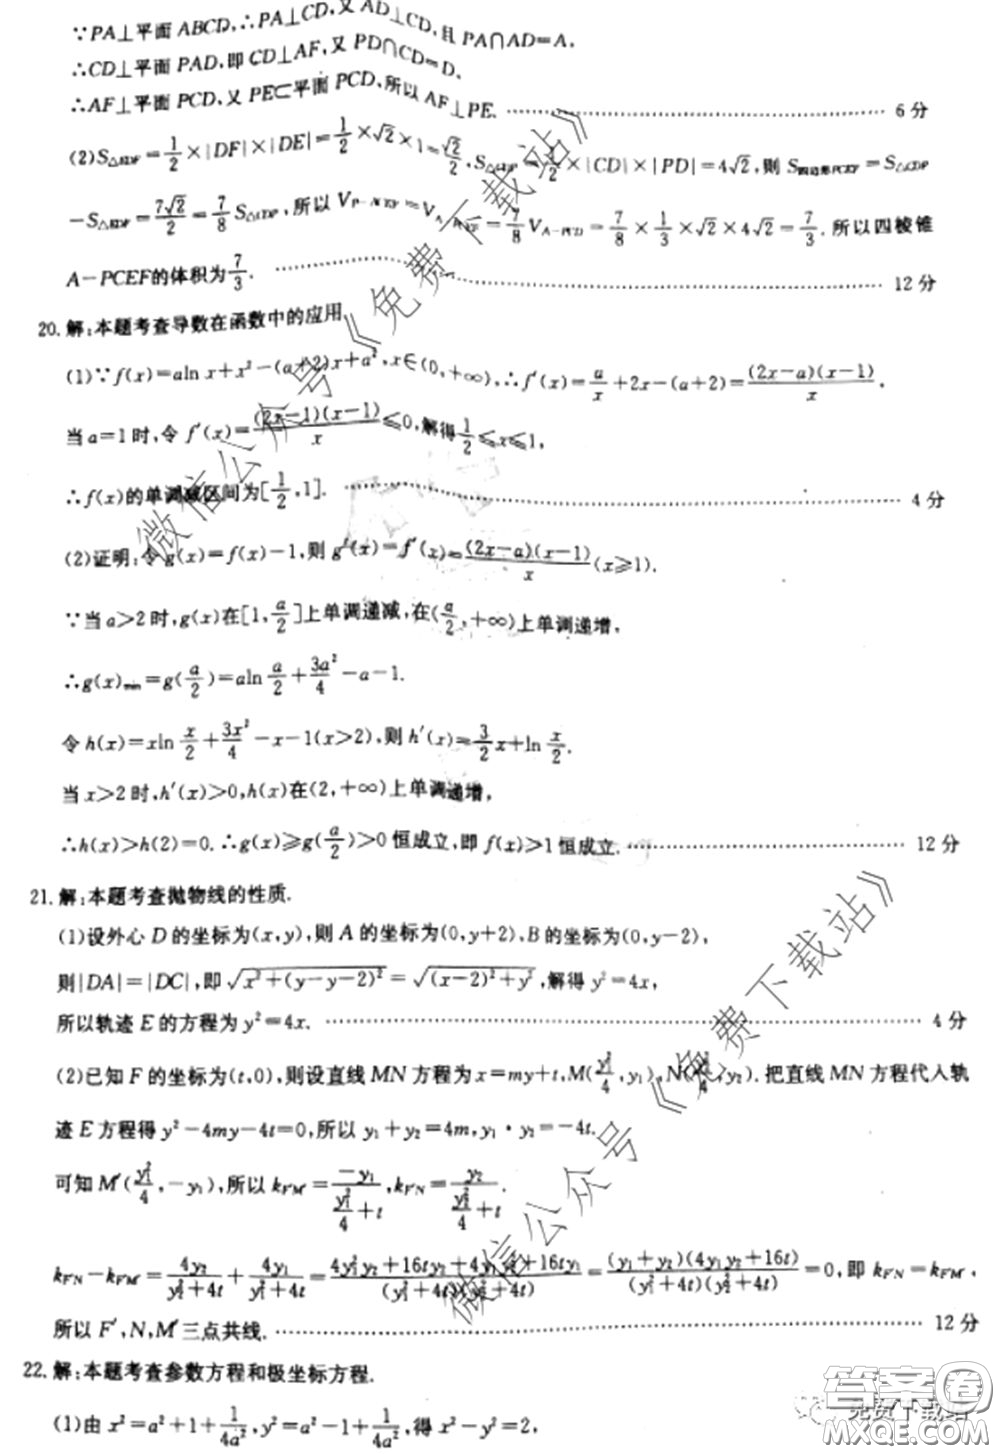 ∵PA⊥平面 ABCD,∴PA⊥CD,又 AD⊥CD,且 PA∩AD=A,
∴CD⊥平面 PAD,即 CD⊥AF,又 PD∩CD=D,
∴AF⊥平面 PCD,又 PE⊂平面 PCD,所以 AF⊥PE. 6 分
(2)S△EDF=1/2×|DF|×|DE|=1/2×√2×1=√2/2,S△CDP=1/2×|CD|×|PD|=4√2,则 S四边形PCEF=S△CDP
-S△EDF=7√2/2=7/8 S△CDP,所以 V =V =7/8 V A-PCD=7/8×1/3×√2×4√2=7/3.所以四棱锥
A-PCEF的体积为7/3. 12 分
20.解:本题考查导数在函数中的应用.
(1)∵f(x)=aln x+x²-(a+2)x+a²,x∈(0,+∞),∴f′(x)=a/x+2x-(a+2)=(2x-a)(x-1)/x,
当a=1时,令 f′(x)=(2x-1)(x-1)/x≤0,解得1/2≤x≤1,
∴f(x)的单调减区间为[1/2,1]. 4 分
(2)证明:令g(x)=f(x)-1,则g′(x)=f′(x)=(2x-a)(x-1)/x(x≥1).
∵当a>2时,g(x)在[1,a/2]上单调递减,在(a/2,+∞)上单调递增,
∴g(x)min=g(a/2)=aln a/2+3a²/4-a-1.
令h(x)=xln x/2+3x²/4-x-1(x>2),则h′(x)=3/2x+ln x/2.
当x>2时,h′(x)>0,h(x)在(2,+∞)上单调递增,
∴h(x)>h(2)=0.∴g(x)≥g(a/2)>0恒成立,即 f(x)>1恒成立. 12 分
21.解:本题考查抛物线的性质.
(1)设外心 D 的坐标为(x,y),则 A 的坐标为(0,y+2),B的坐标为(0,y-2),
则|DA|=|DC|,即√(x²+(y-y-2)²)=√((x-2)²+y²),解得 y²=4x,
所以轨迹 E 的方程为 y²=4x. 4 分
(2)已知 F 的坐标为(t,0),则设直线 MN 方程为 x=my+t,M(y₁²/4,y₁),N(y₂²/4,y₂).把直线 MN 方程代入轨
迹 E 方程得 y²-4my-4t=0,所以 y₁+y₂=4m,y₁·y₂=-4t.
可知 M′(y₁²/4,-y₁),所以 kF′M′=-y₁/(y₁²/4+t),kF′N=y₂/(y₂²/4+t).
kF′N-kF′M′=4y₂/(y₂²+4t)+4y₁/(y₁²+4t)=(4y₁²y₂+16ty₂+4y₁y₂²+16ty₁)/((y₁²+4t)(y₂²+4t))=(y₁+y₂)(4y₁y₂+16t)/((y₁²+4t)(y₂²+4t))=0,即 kF′N=kF′M′,
所以 F′,N,M′三点共线. 12 分
22.解:本题考查参数方程和极坐标方程.
(1)由 x²=a²+1+1/4a²,y²=a²-1+1/4a²,得 x²-y²=2,
微信公众号《免费下载站》
微信公众号《免费下载站》
答案圈
MXQE.COM